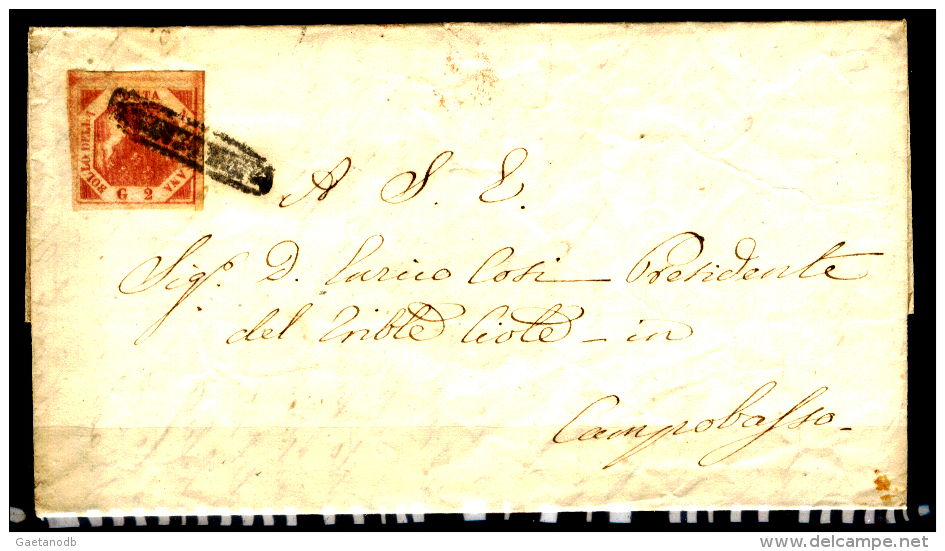 BOLLO DELLA POSTA NA
G. 2
A S. E.
Sigr. D. Enrico Cosi Presidente
del Trible Civle - in
Campobasso -
Gaetanodb
delcampe.net